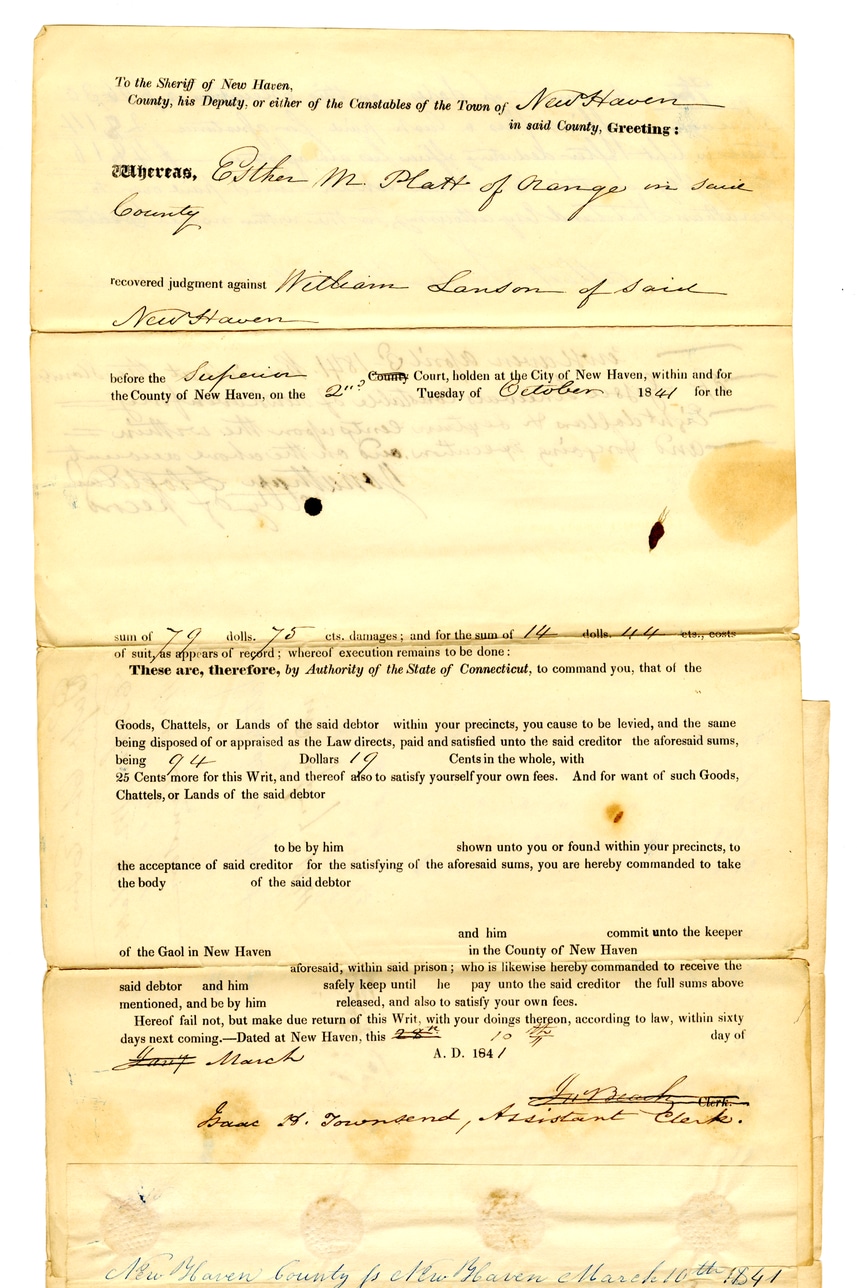 To the Sheriff of New Haven,
County, his Deputy, or either of the Canstables of the Town of New Haven
in said County, Greeting:
Whereas, Esther M. Platt of Orange in said
County
recovered judgment against William Lanson of said
New Haven
before the Superior County Court, holden at the City of New Haven, within and for
the County of New Haven, on the 2nd Tuesday of October 1841 for the
sum of 79 dolls. 75 cts. damages; and for the sum of 14 dolls. 44 cts., costs
of suit, as appears of record; whereof execution remains to be done:
These are, therefore, by Authority of the State of Connecticut, to command you, that of the
Goods, Chattels, or Lands of the said debtor within your precincts, you cause to be levied, and the same
being disposed of or appraised as the Law directs, paid and satisfied unto the said creditor the aforesaid sums,
being 94 Dollars 19 Cents in the whole, with
25 Cents more for this Writ, and thereof also to satisfy yourself your own fees. And for want of such Goods,
Chattels, or Lands of the said debtor
to be by him shown unto you or found within your precincts, to
the acceptance of said creditor for the satisfying of the aforesaid sums, you are hereby commanded to take
the body of the said debtor
and him commit unto the keeper
of the Gaol in New Haven in the County of New Haven
aforesaid, within said prison; who is likewise hereby commanded to receive the
said debtor and him safely keep until he pay unto the said creditor the full sums above
mentioned, and be by him released, and also to satisfy your own fees.
Hereof fail not, but make due return of this Writ, with your doings thereon, according to law, within sixty
days next coming.—Dated at New Haven, this 28th 10th day of
Jany March A. D. 1841
Jn Beach Clerk.
Isaac H. Townsend, Assistant Clerk.
New Haven County ss New Haven March 10th 1841